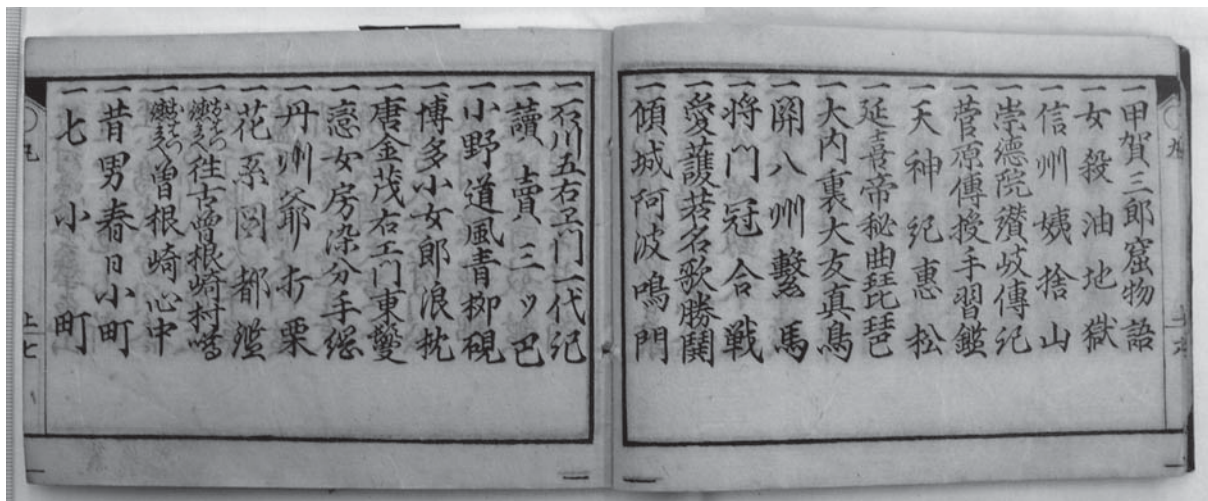 一甲賀三郎窟物語
一女殺油地獄
一信州姨捨山
一崇徳院讃岐傳記
一菅原傳授手習鑑
一天神紀恵松
一延喜帝秘曲琵琶
一大内裏大友真鳥
一関八州繋馬
一将門冠合戦
一愛護若名歌勝鬨
一傾城阿波鳴門
一石川五右衛門一代記
一讀賣三ッ巴
一小野道風青柳硯
一博多小女郎浪枕
一唐金茂右エ門東鬘
一恋女房染分手綱
一丹州爺打栗
一花系図都鑑
一往古曽根崎村噂
一曽根崎心中
一昔男春日小町
一七小町
上七